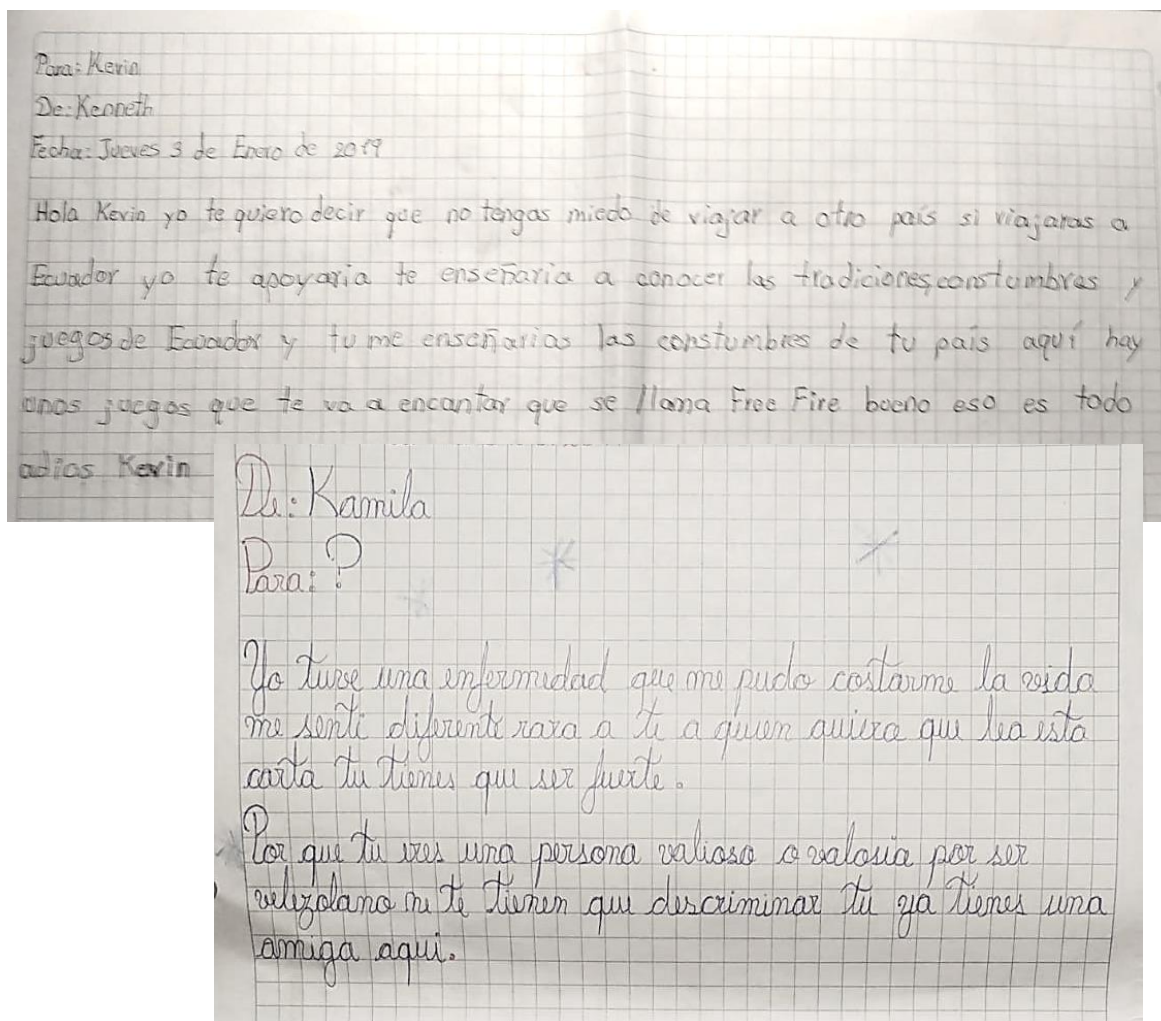 Para: Kevin
De: Kenneth
Fecha: Jueves 3 de Enero de 2019
Hola Kevin yo te quiero decir que no tengas miedo de viajar a otro país si viajaras a
Ecuador yo te apoyaria te enseñaria a conocer las tradiciones, constumbres y
juegos de Ecuador y tu me enseñarias las constumbres de tu país aquí hay
unos juegos que te va a encantar que se llama Free Fire bueno eso es todo
adios Kevin
De: Kamila
Para: ?
Yo tuve una enfermedad que me pudo costarme la vida
me senti diferente rara a ti a quien quiera que lea esta
carta tu tienes que ser fuerte.
Por que tu eres una persona valiosa o por ser
no te tienen que descriminar tu ya tienes una
amiga aqui.